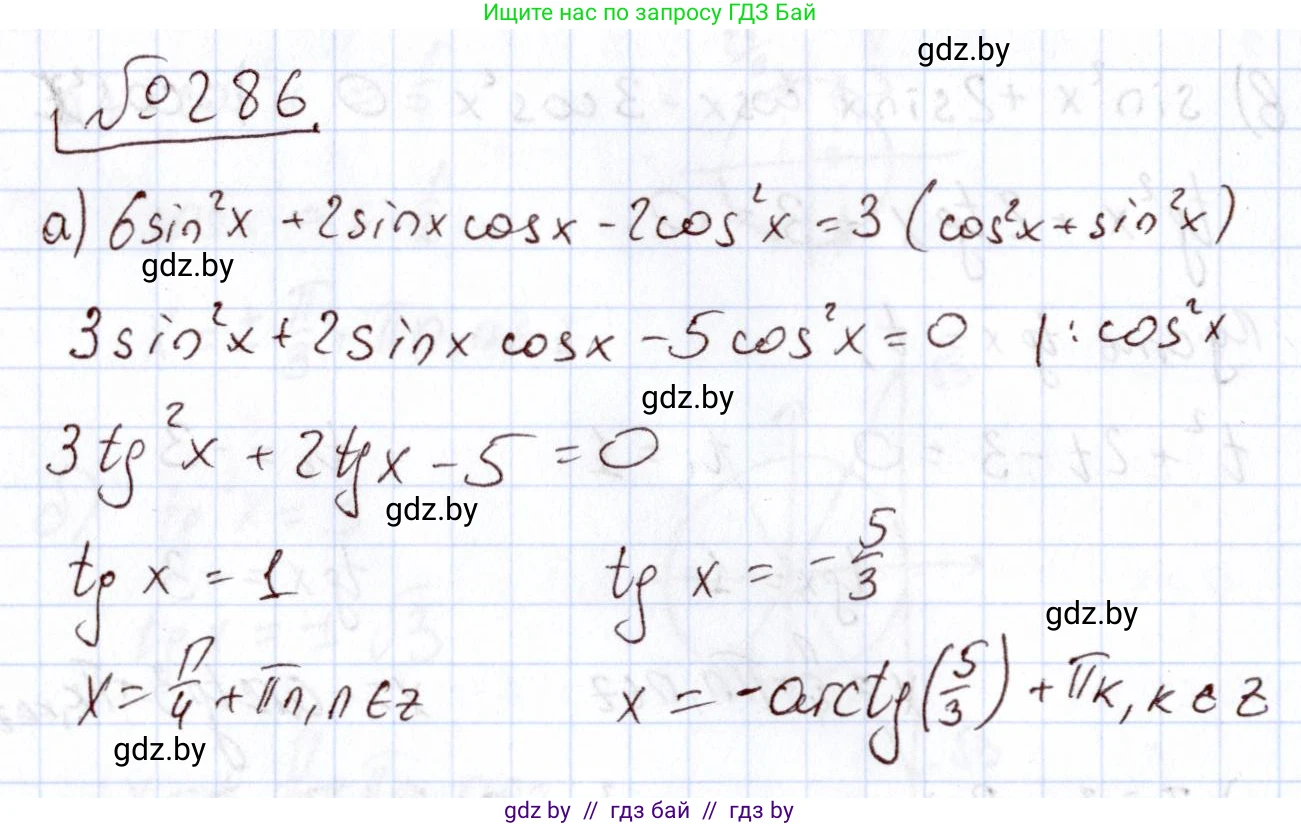 Ищите нас по запросу ГДЗ Бай
gdz.by
№286
а) 6sin²x + 2sinx cosx - 2cos²x = 3(cos²x + sin²x)
gdz.by
3sin²x + 2sinx cosx - 5cos²x = 0 | : cos²x
gdz.by
3tg²x + 2tgx - 5 = 0
gdz.by
tg x = 1 tg x = -5/3
gdz.by
x = π/4 + πn, n∈z x = -arctg(5/3) + πк, к∈z
gdz.by
gdz by // гдз бай // гдз by